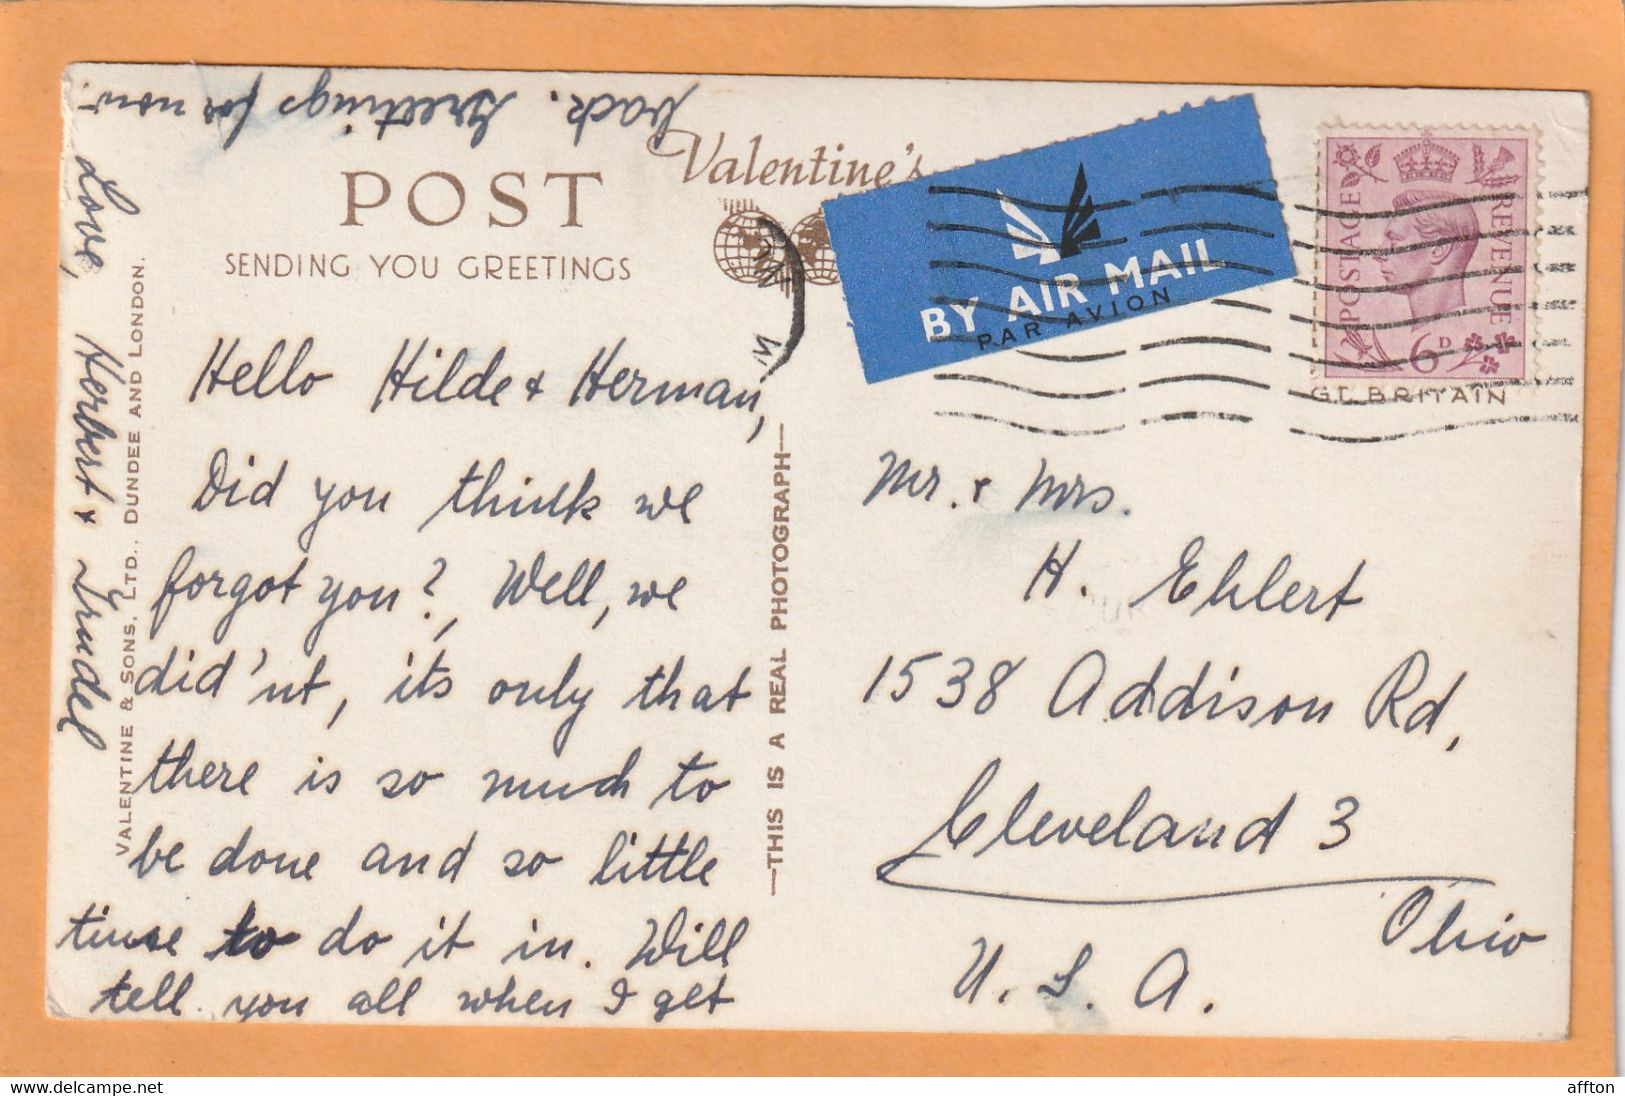 POST
SENDING YOU GREETINGS
Valentine's
BY AIR MAIL
PAR AVION
POSTAGE
REVENUE
6D
GT. BRITAIN
Hello Hilde & Herman,
Did you think we
forgot you?, Well, we
did'nt, its only that
there is so much to
be done and so little
time to do it in. Will
tell you all when I get
back. Greetings for now.
Love, Herbert & Trudel
VALENTINE & SONS, LTD., DUNDEE AND LONDON.
—THIS IS A REAL PHOTOGRAPH—
Mr. & Mrs.
H. Ehlert
1538 Addison Rd,
Cleveland 3
Ohio
U. S. A.
affton